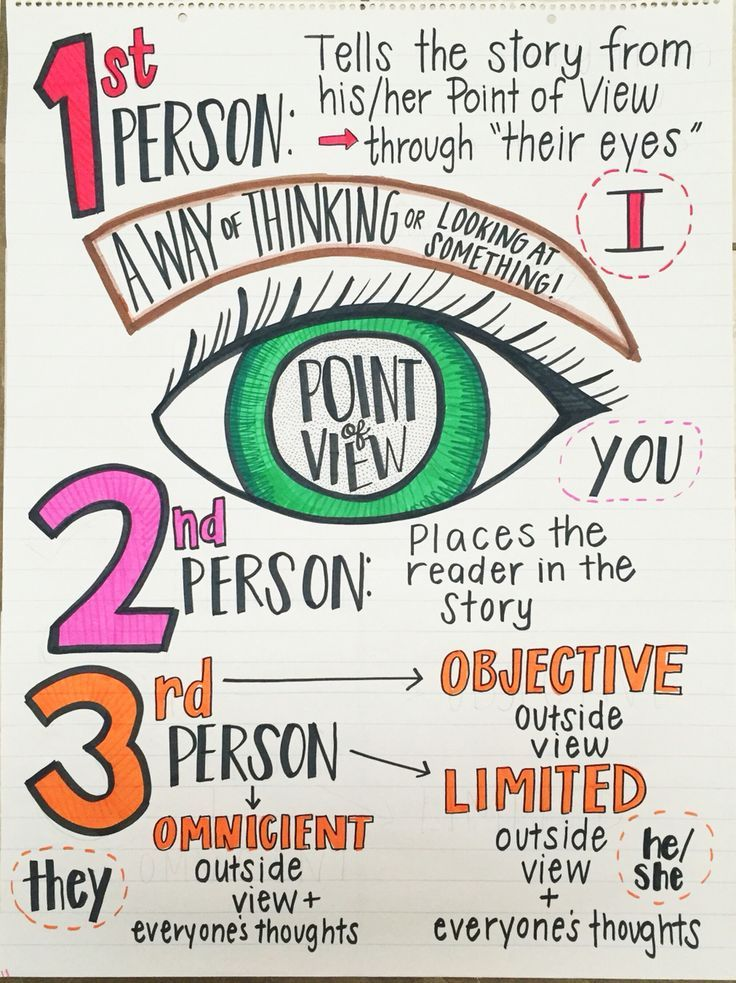 1st PERSON:
Tells the story from
his/her Point of View
→ through "their eyes"
I
A WAY OF THINKING OR LOOKING AT
SOMETHING!
POINT
of
VIEW
YOU
2nd PERSON:
Places the
reader in the
Story
3rd PERSON
OBJECTIVE
outside
view
LIMITED
outside
view
+
everyone's thoughts
he/
she
OMNICIENT
outside
view +
everyone's thoughts
they